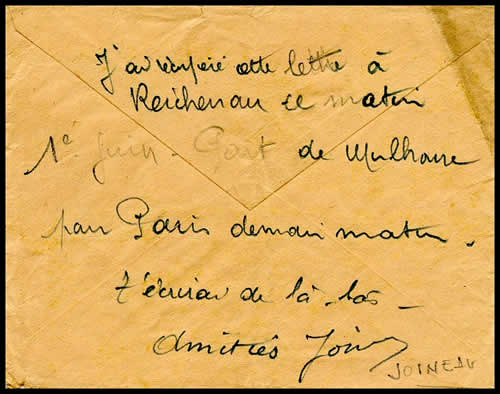 J'ai récupéré cette lettre à
Reichenau ce matin
1er Juin - Part de Mulhouse
pour Paris demain matin.
T'écrirai de là-bas -
Amitiés
JOINEAU